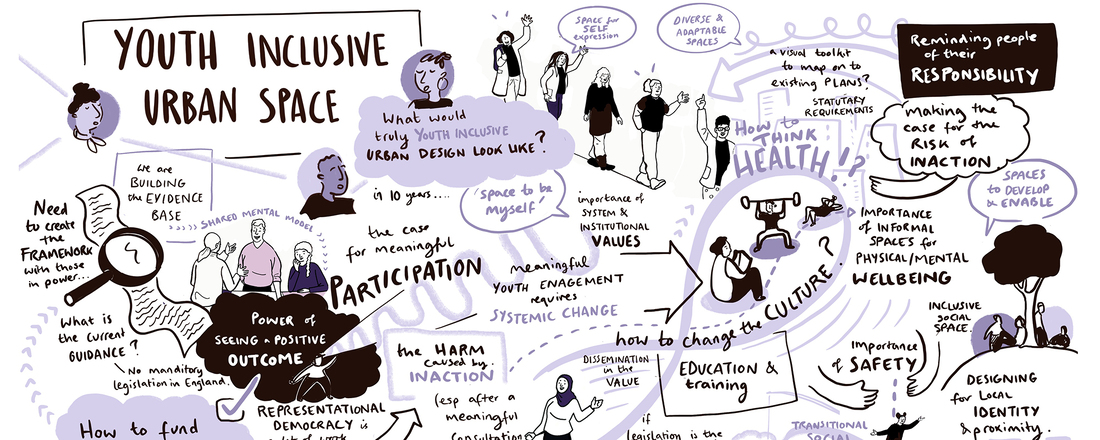 YOUTH INCLUSIVE
URBAN SPACE
What would
truly YOUTH INCLUSIVE
URBAN DESIGN LOOK LIKE?
in 10 years....
SPACE for
SELF
expression
DIVERSE &
ADAPTABLE
SPACES
a visual toolkit
to map on to
existing PLANS?
STATUTARY
REQUIREMENTS
Reminding people
of their
RESPONSIBILITY
making the
case for the
RISK of
INACTION
How to
THINK
HEALTH!?
SPACES
to DEVELOP
& ENABLE
we are
BUILDING
the EVIDENCE
BASE
SHARED MENTAL MODEL
Need
to create
the
FRAMEWORK
with those
in power...
What is
the current
GUIDANCE?
No manditory
legislation in England.
'space to be
myself'
the case
for meaningful
PARTICIPATION
importance of
SYSTEM &
INSTITUTIONAL
VALUES
meaningful
YOUTH ENAGEMENT
requires
SYSTEMIC CHANGE
POWER of
SEEING a POSITIVE
OUTCOME
the HARM
caused by
INACTION
(esp after a
meaningful
Consultation
how to change the CULTURE?
DISSEMINATION
in the
VALUE
EDUCATION &
training
IMPORTANCE
of INFORMAL
SPACES for
PHYSICAL/MENTAL
WELLBEING
INCLUSIVE
SOCIAL
SPACE.
Importance
of SAFETY
DESIGNING
for LOCAL
IDENTITY
& proximity.
How to fund
REPRESENTATIONAL
DEMOCRACY is
if
legislation is the
TRANSITIONAL
SOCIAL